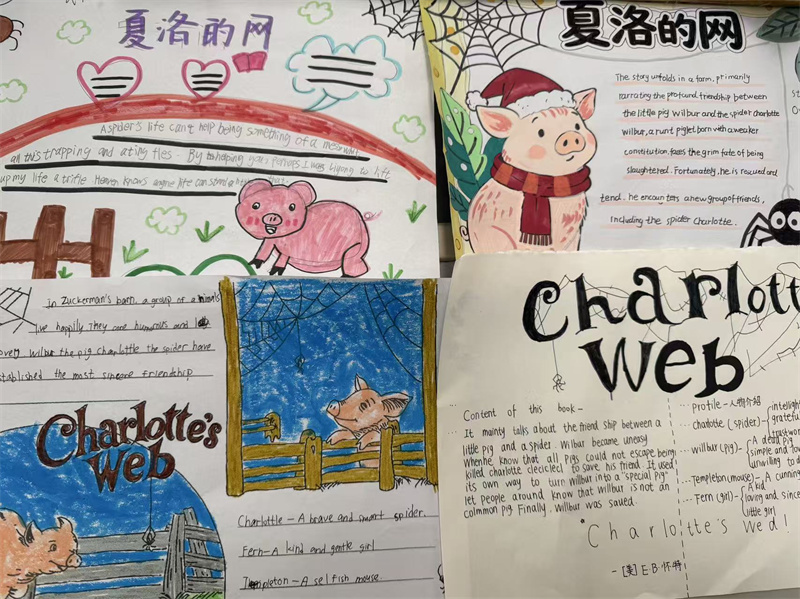 夏洛的网
A spider's life can't help being something of a mess, with
all this trapping and ating flies. By helping you, perhaps I was trying to lift
up my life a trifle. Heaven knows anyone life can stand a
夏洛的网
The story unfolds in a farm, primarily
narrating the profound friendship between
the little pig Wilbur and the spider charlotte
Wilbur, a runt piglet born with a weaker
constitution, faces the grim fate of being
slaughtered. Fortunately, he is rescued and
tend. he encounters a new group of friends,
including the spider Charlotte.
in Zuckerman's barn, a group of animals
live happily They are humorous and
Wilbur the pig charlotte the spider have
established the most sincere friendship
Charlotte's
Web
Charlottle — A brave and smart spider.
Fern — A kind and gentle girl
A selfish mouse.
Charlott
Web
Content of this book -
It mainty talks about the friend ship between a
little pig and a spider. Wilbur became uneasy
When he know that all pigs could not escape being
killed charlotte decided to save his friend. It used
its own way to turn Wilbur into a "special pig"
let people around know that wilbur is not an
colmmon pig. Finally. Wilbur was saued.
Profile - 人物介绍
charlotte (spider)
wilbur (pig)
A dead pig
simple and
unwilling to
Templeton (mouse) - A cunning
Fern (girl)
A kid
loving and since
little girl
"Charlotte's Wed!
- [美] E·B·怀特